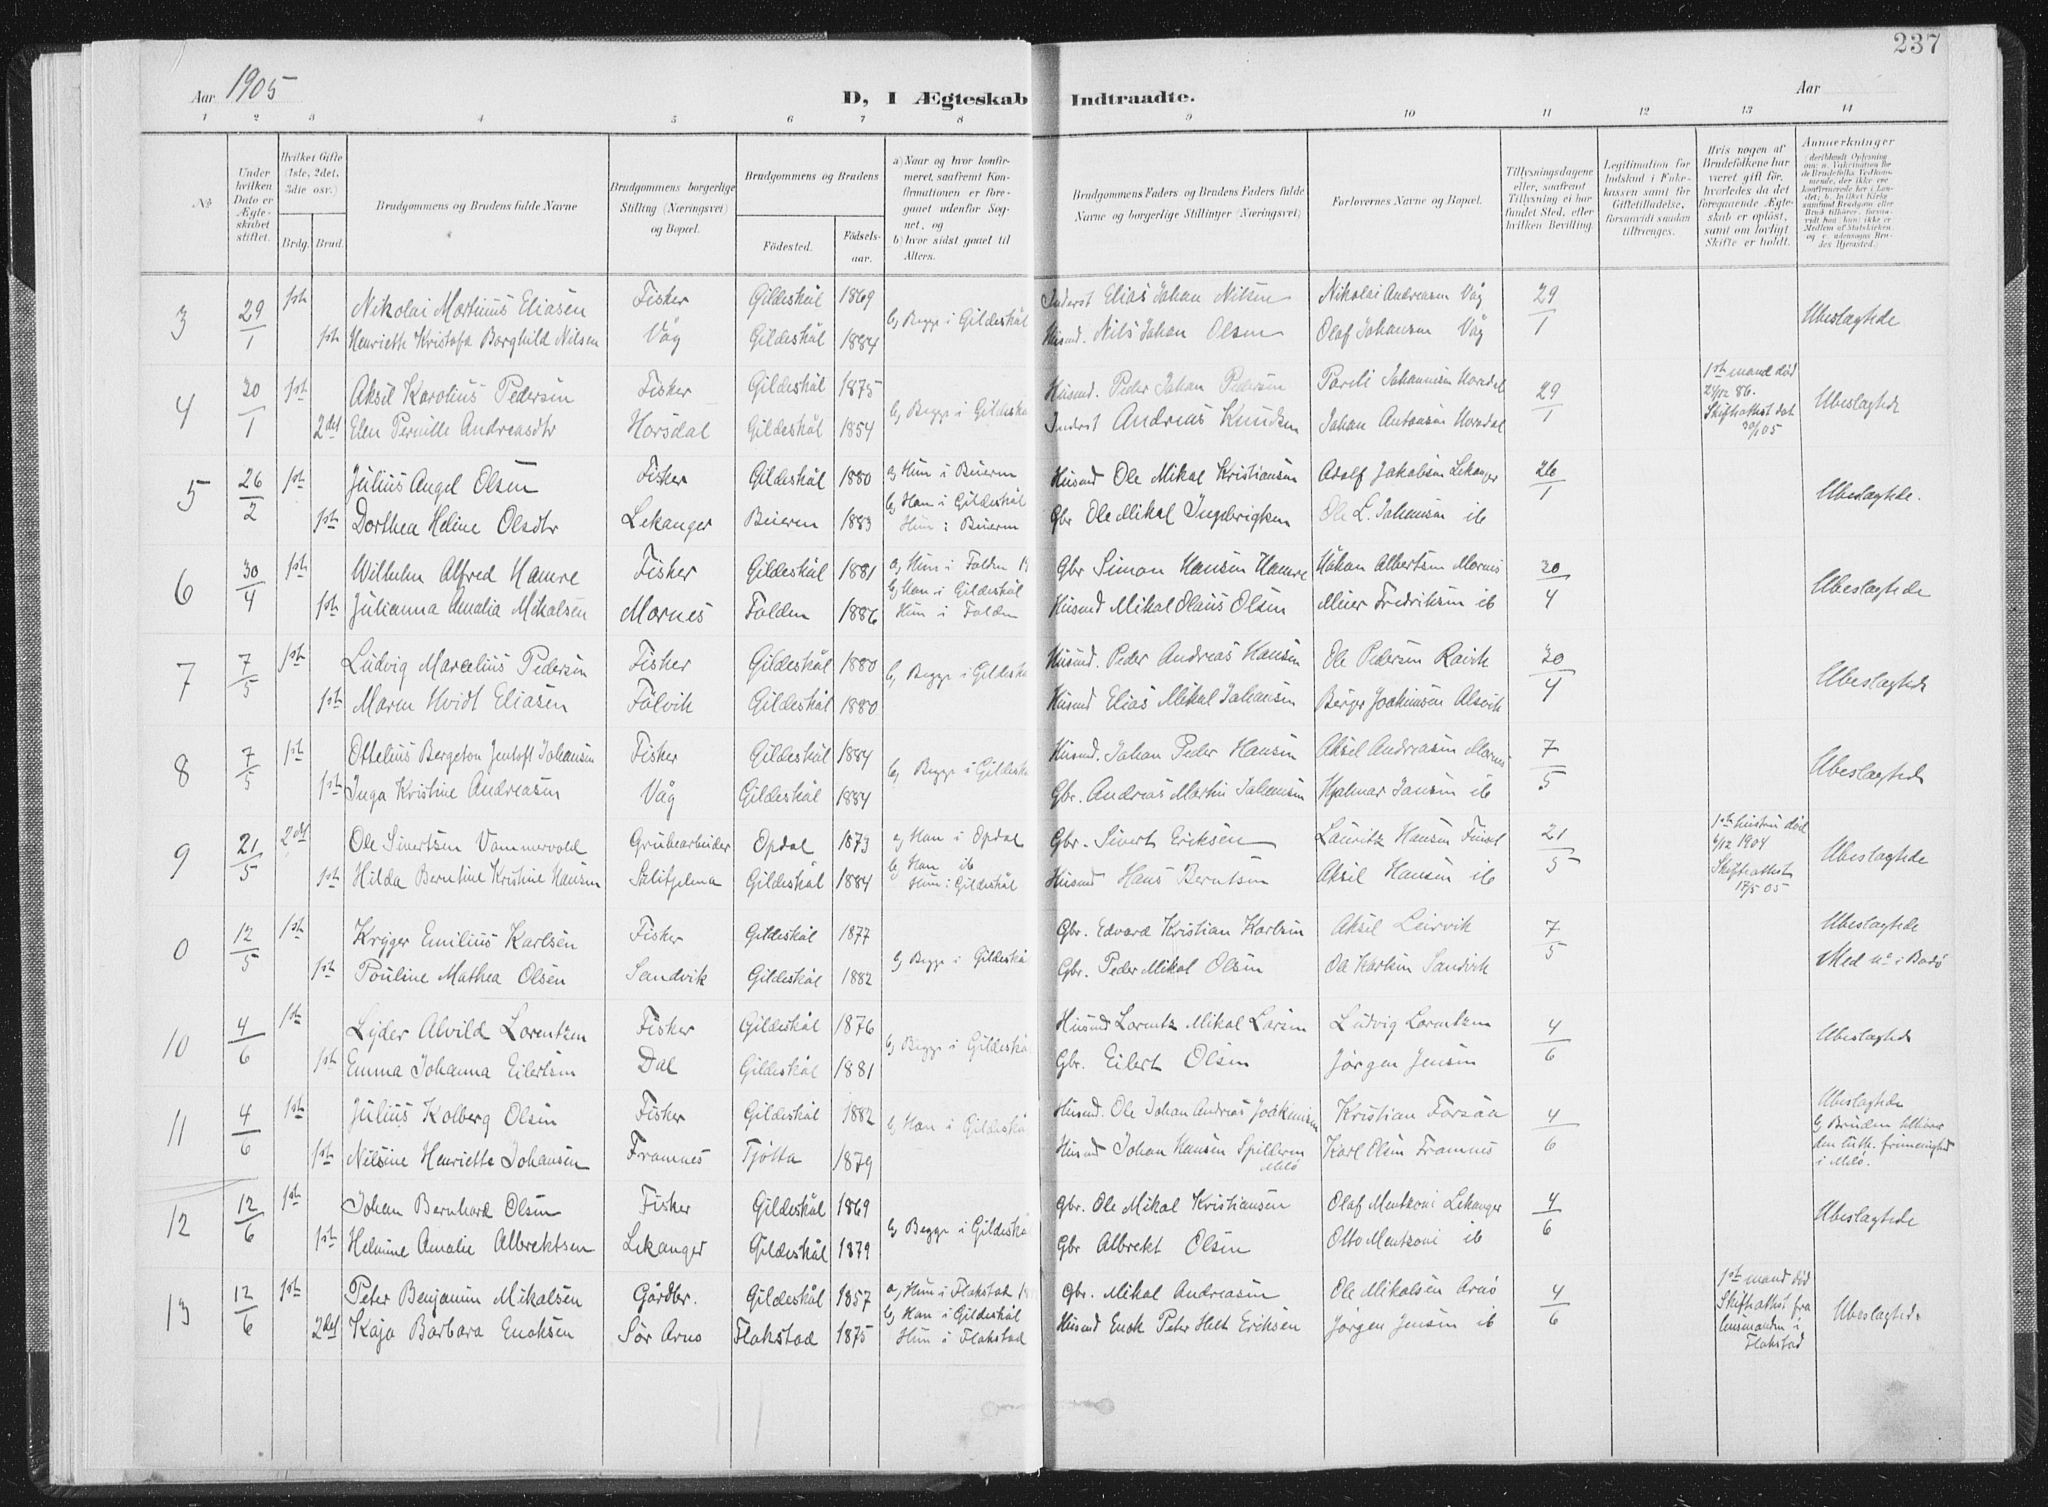 237
Aar 1905
D, I Ægteskab Indtraadte.
Aar
1 2 3 4 5 6 7 8 9 10 11 12 13 14
No
Under hvilken Dato er Ægteskabet stiftet.
Hvilket Gifte (1ste, 2det, 3die osv.)
Brdg. Brud.
Brudgommens og Brudens fulde Navne
Brudgommens borgerlige Stilling (Næringsvei) og Bopæl.
Brudgommens og Brudens
Fødested. Fødselsaar.
a) Naar og hvor konfirmeret, saafremt Konfirmationen er foregaaet udenfor Sognet, og
b) hvor sidst gaaet til Alters.
Brudgommens Faders og Brudens Faders fulde Navne og borgerlige Stillinger (Næringsvei)
Forlovernes Navne og Bopæl.
Tillysningsdagene eller, saafremt Tillysning ei har fundet Sted, efter hvilken Bevilling.
Legitimation for Indskud i Enkekassen samt for Giftetilladelse, forsaavidt saadan tiltrænges.
Hvis nogen af Brudefolkene har været gift før, hvorledes da det foregaaende Ægteskab er opløst, samt om lovligt Skifte er holdt.
Anmerkninger
3 29/1 1ste Nikolai Martinus Eliasen Fisker Gildeskål 1869 b, Begge i Gildeskål Inderst Elias Johan Nilsen Nikolai Andreasen Våg 29/1 Ubeslægtede
1ste Henriette Kristofa Borghild Nilsen Våg Gildeskål 1884 Husmd. Nils Johan Olsen Olaf Johansen Våg
4 30/1 1ste Aksel Karolius Pedersen Fisker Gildeskål 1875 b, Begge i Gildeskå Husmd. Peder Johan Pedersen Pareli Johannesen Horsdal 29/1 1ste mand død 21/12 86. Skifteattest dat 30/1 05 Ubeslægtede
2det Elen Pernille Andreasdtr Horsdal Gildeskål 1854 Inderst Andreas Knudsen Johan Antonsen Horsdal
5 26/2 1ste Julius Angel Olsen Fisker Gildeskål 1880 a, Hun i Beieren Husmd Ole Mikal Kristiansen Adolf Jakobsen Lekanger 26/1 Ubeslægtede.
1ste Dorthea Heline Olsdtr Lekanger Beieren 1883 b, Han i Gildeskål Hun i Beieren Gbr Ole Mikal Ingebrigtsen Ole L. Johansen ib
6 30/4 1ste Wilhelm Alfred Hamre Fisker Gildeskål 1881 a, Hun i Folden Gbr Simon Hansen Hamre Håkon Albertsen Mornes 30/4 Ubeslægtede
1ste Julianna Amalia Mikalsen Mornes Folden 1886 b, Han i Gildeskål Hun i Folden Husmd Mikal Olaus Olsen Meier Fredriksen ib
7 7/5 1ste Ludvig Marcelius Pedersen Fisker Gildeskål 1880 b, Begge i Gildeskå Husmd. Peder Andreas Hansen Ole Pedersen 30/4 Ubeslægtede
1ste Maren Hvidt Eliasen Følvik Gildeskål 1880 Husmd Elias Mikal Johansen Berger Joakimsen Alsvik
8 7/5 1ste Ottelius Bergeton Jentoft Johansen Fisker Gildeskål 1884 b, Begge i Gildeskå Husmd. Johan Peder Hansen Aksel Andreasen Mornes 7/5 Ubeslægtede
1ste Inga Kristine Andreasen Våg Gildeskål 1884 Gbr. Andreas Martin Johansen Hjalmar Jansen ib
9 21/5 2det Ole Sivertsen Vammervold Grubearbeider Opdal 1873 a, Han i Opdal Gbr. Sivert Eriksen Lauritz Hansen 21/5 1ste hustru død 4/12 1904 Skifteattest 17/5 05 Ubeslægtede
1ste Hilda Berntine Kristine Hansen Sulitjelma Gildeskål 1884 b, Han ib Hun i Gildeskål Husmd Hans Berntsen Aksel Hansen ib
0 12/5 1ste Kryger Emilius Karlsen Fisker Gildeskål 1877 b, Begge i Gildeskål Gbr. Edvard Kristian Karlsen Aksel Leirvik 7/5 Ubeslægtede
1ste Pouline Mathea Olsen Sandvik Gildeskål 1882 Gbr. Peder Mikal Olsen Ole Karlsen Sandvik Med no i Bodø
10 4/6 1ste Lyder Alvild Lorentzen Fisker Gildeskål 1876 b, Begge i Gildeskål Husmd Lorentz Mikal Larsen Ludvig Lorentzen 4/6 Ubeslægtede
1ste Emma Johanna Eilertsen Dal Gildeskål 1881 Gbr. Eilert Olsen Jørgen Jensen
11 4/6 1ste Julius Kolberg Olsen Fisker Gildeskål 1882 b, Han i Gildeskål Husmd. Ole Johan Andreas Joakimsen Kristian Forsåa 4/6 Ubeslægtede
1ste Nilsine Henriette Johansen Framnes Tjøtta 1879 Husmd Johan Hansen Spilderen Melø Karl Olsen Framnes b, Bruden tilhører den luth. frimenighed i Melø.
12 12/6 1ste Johan Bernhard Olsen Fisker Gildeskål 1869 b, Begge i Gildeskål Gbr. Ole Mikal Kristiansen Olaf Mentzoni Lekanger 4/6 Ubeslægtede
1ste Helmine Amalie Albrektsen Lekanger Gildeskål 1879 Gbr Albrekt Olsen Otto Mentzoni ib
13 12/6 1ste Peter Benjamin Mikalsen Gårdbr. Gildeskål 1857 a, Hun i Flakstad Gbr. Mikal Andreasen Ole Mikalsen Arnø 4/6 1ste mand død Skifteattest fra lensmanden i Flakstad Ubeslægtede
2det Kaja Barbara Enoksen Sør Arnø Flakstad 1875 b, Han i Gildeskål Hun i Flakstad Husmd Enok Peter Helt Eriksen Jørgen Jensen ib